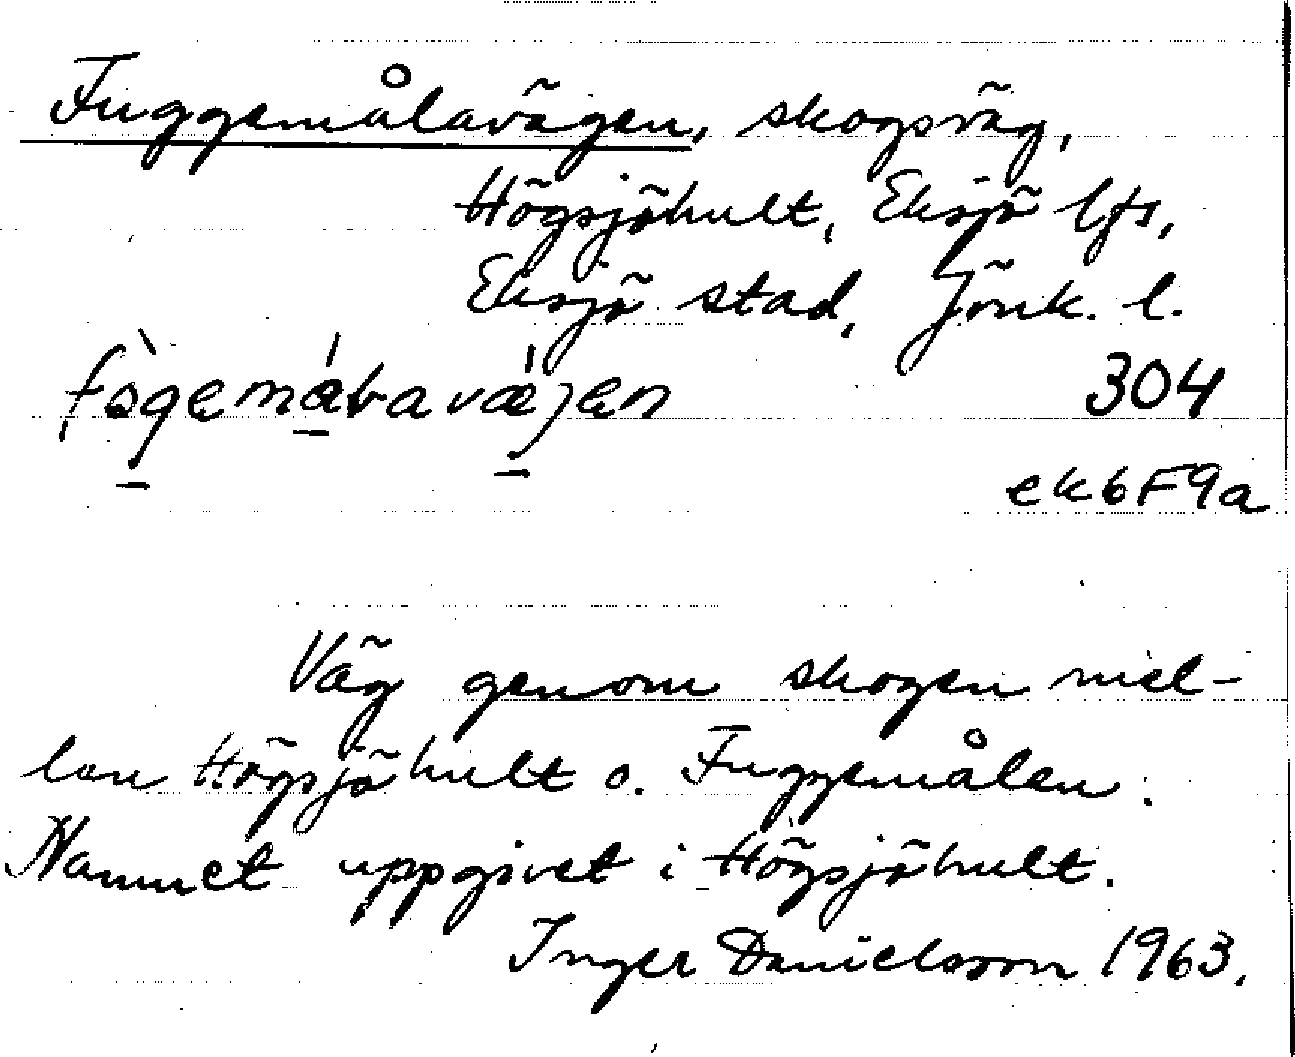 Fuggemålavägen, skogsväg,
Högsjöhult, Eksjö lfs,
Eksjö stad, Jönk. l.
304
ek6F9a
Väg genom skogen mel-
lan Högsjöhult o. Fuggemålen.
Namnet uppgivet i Högsjöhult.
Inger Danielsson 1963.